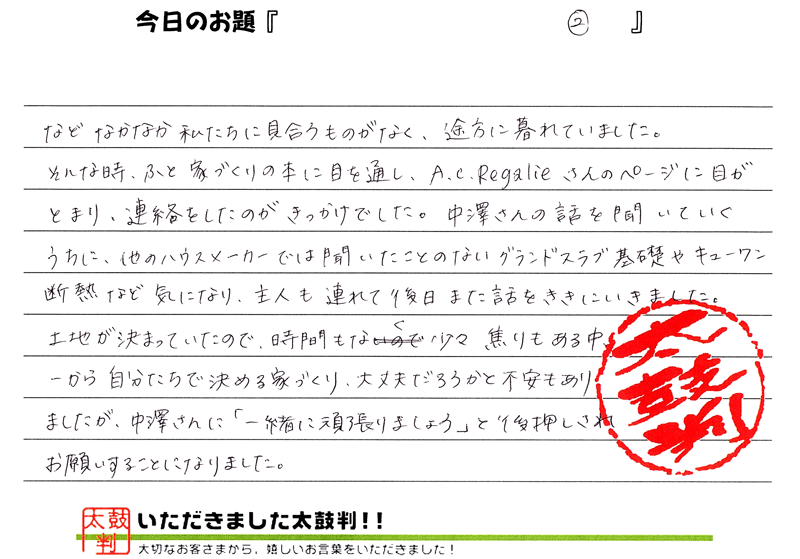 今日のお題『 ② 』
など なかなか 私たちに見合うものがなく、途方に暮れていました。
そんな時、ふと 家づくりの本に目を通し、A.c.Regalie さんのページに目が
とまり、連絡をしたのが きっかけでした。中澤さんの話を聞いていく
うちに、他のハウスメーカーでは聞いたことのない グランドスラブ基礎や キューワン
断熱など 気になり、主人も 連れて 後日 また 話をききにいきました。
土地が決まっていたので、時間もなく 少々 焦りもある中、
一から 自分たちで決める家づくり、大丈夫だろうかと不安もあり
ましたが、中澤さんに「一緒に頑張りましょう」と後押しされ
お願いすることになりました。
太鼓判
太鼓判
いただきました太鼓判!!
大切なお客さまから、嬉しいお言葉をいただきました!